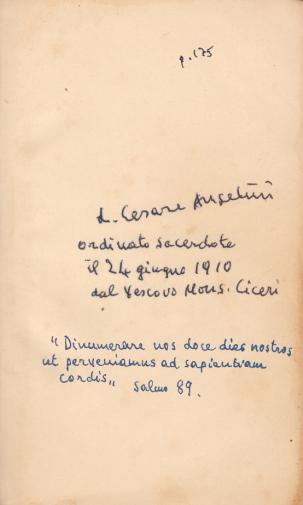 p. 175
d. Cesare Angelini
ordinato sacerdote
il 24 giugno 1910
dal Vescovo Mons. Ciceri
"Dinumerare nos doce dies nostros
ut perveniamus ad sapientiam
cordis„ Salmo 89.